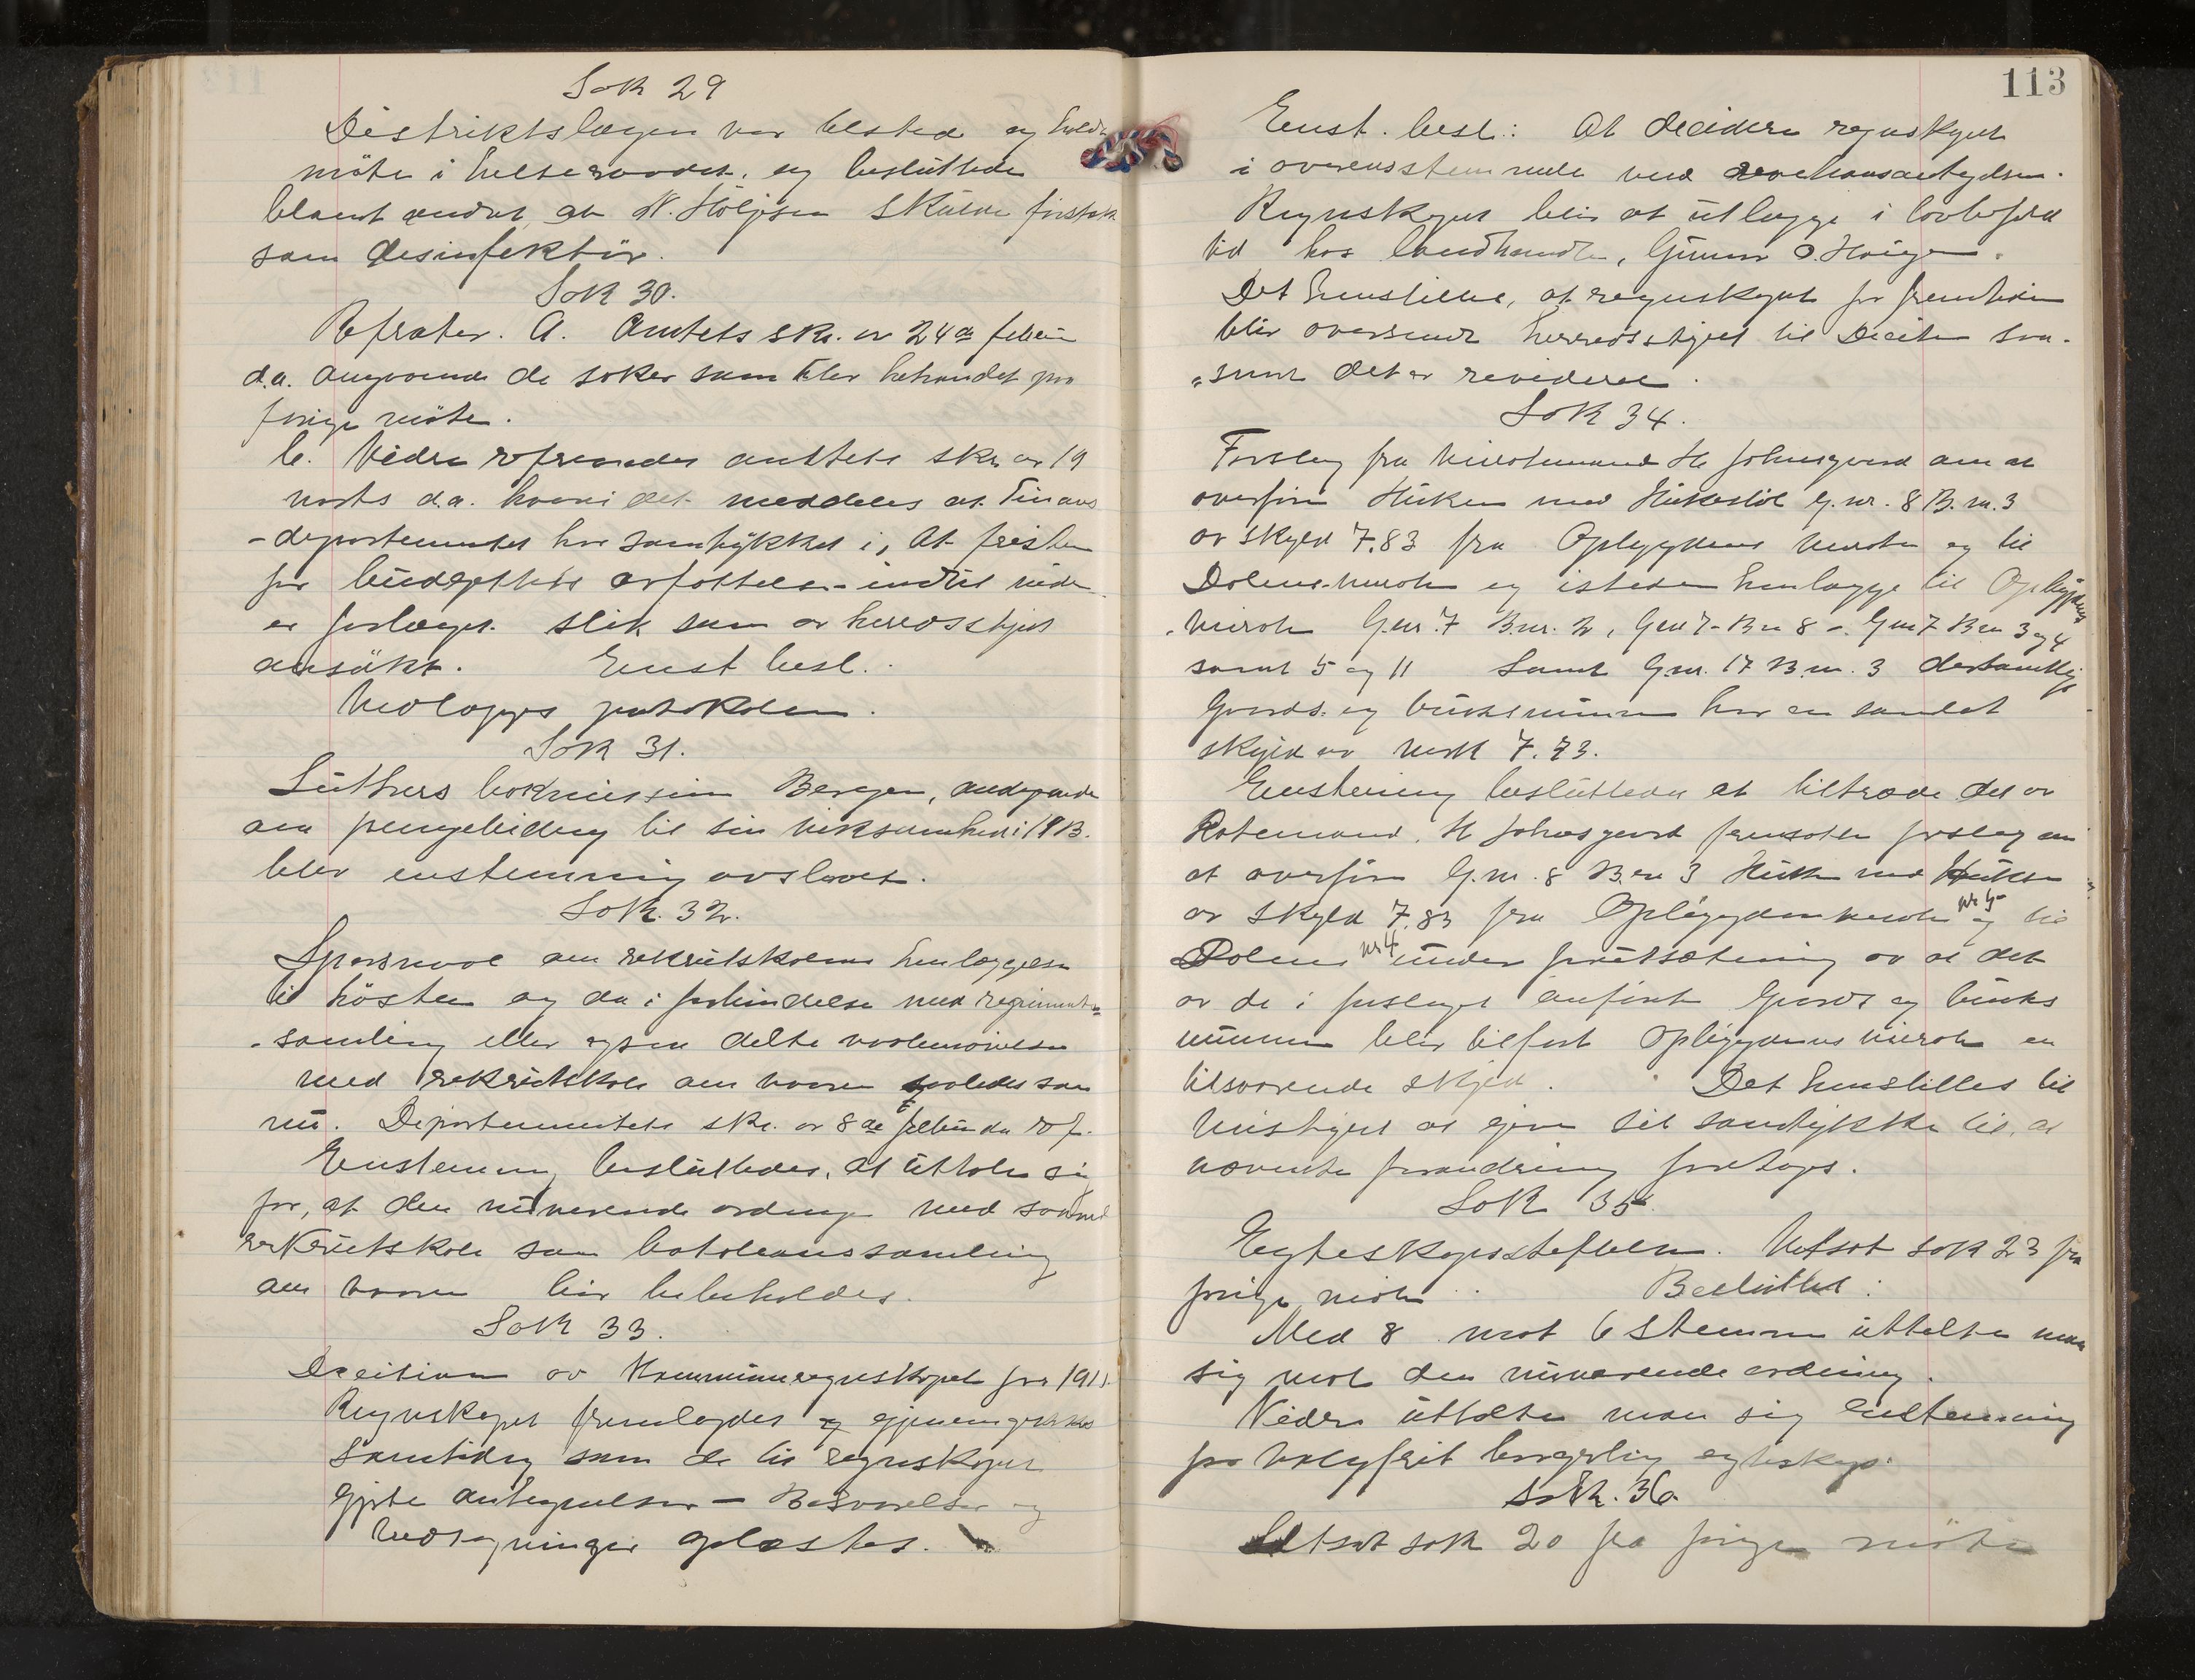 Sak 29
Distriktslægen var tilstede og holdt
möte i helseraadet, og besluttedes
blandt andet at N. Höljesen skulde
som desinfektör.
Sak 30.
Referater. A. Amtets skr. av 24de februar
d.a. angaaende de saker som blev behandlet paa
forrige möte.
b. Videre refereredes amtets skr. av 19
marts d.a. hvori det meddeles at Finans
-departementet har samtykket i, at fristen
for budgettets avfattelse indtil videre
er forlænget slik som av herredsstyret
ansökt. Enst. besl.
Vedlægges protokolen.
Sak 31.
Luthers bokmission Bergen, andragende
om pengebidrag til sin virksomhet i 1913.
blev enstemmig avslaaet.
Sak. 32.
Spörsmaal om rekrutskolens henlæggelse
til hösten og da i forbindelse med regiments-
-samling eller ogsaa delte vaabenövelser
med rekrutskole om vaaren saaledes som
nu. Departementets skr. av 8de februar ref.
Enstemmig besluttedes, at uttale sig
for, at den nuværende ordning med saavel
rekrutskole som bataljonssamling
om vaaren bör bibeholdes.
Sak 33.
Decision av Kommuneregnskapet for 1911.
Regnskapet fremlagdes og gjennemgikkes
samtidig som de til regnskapet
gjorte antegnelser - Besvarelser og
Utdragninger oplæstes.
113
Enst. besl: At decidere regnskapet
i overensstemmelse med revisionsantydelsen.
Regnskapet blir at utlægge i lovbefalt
tid hos landhandler, Gunnar O. Hoigen.
Det henstilles, at regnskapet for fremtiden
blir oversendt herredsstyret til Decision saa-
"snart det er revideret.
Sak 34.
Forslag fra Veirotemand H Johnsgaard om at
overföre Huken med Hukestöl G.nr. 8 B.nr. 3
av skyld 7.83 fra Opbygdens veirote og til
Dalens veirote og isteden henlægge til Opbygdens
-veirote G.nr. 7 B.nr. 2, Gnr 7 - Bnr 8 - Gnr 7 Bnr 3 og 4
samt 5 og 11 samt G.nr. 17 B.nr. 3 dersamtlige
Gaards- og bruksnummer har en samlet
skyld av mark 7.73.
Enstemmig besluttedes at tiltræde det av
Rotemand H Johnsgaard fremsatte forslag om
at overföre G.nr. 8 B.nr 3 Huken med Hukestöl
av skyld 7.83 fra Opbygdens veirote nr 5 og til
Dalens nr 4 under forutsætning av at det
av de i forslaget anfört Gaards og bruks
nummer blir tilfört Opbygdens veirote en
tilsvarende skyld. Det henstilles til
Veistyret at give sit samtykke til, at
nævnte forandring foretages.
Sak 35.
Egteskapsstiftelsen. Utsat sak 23 fra
forrige möte. Besluttet:
Med 8 mot 6 stemmer uttalte man
sig mot den nuværende ordning.
Videre uttalte man sig enstemmig
for valgfrit borgerlig egteskap.
Sak. 36.
Utsat sak 20 fra forrige möte